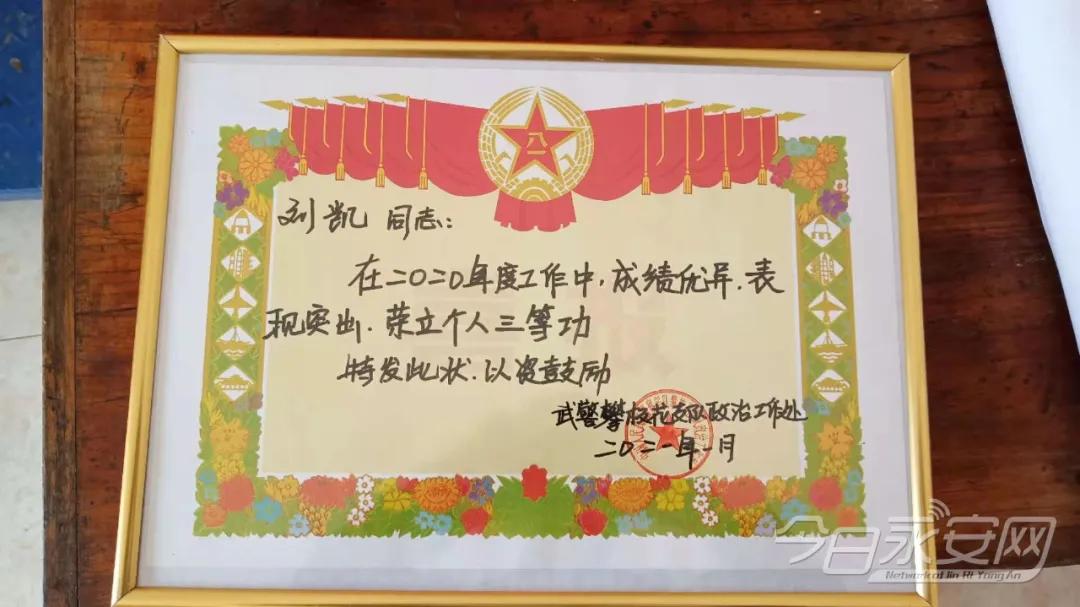 八一
刘凯 同志:
在二〇二〇年度工作中,成绩优异、表
现突出、荣立个人三等功
特发此状、以资鼓励
武警攀枝花支队政治工作处
二〇二一年一月
今日永安网
Network of Jin Ri Yong An